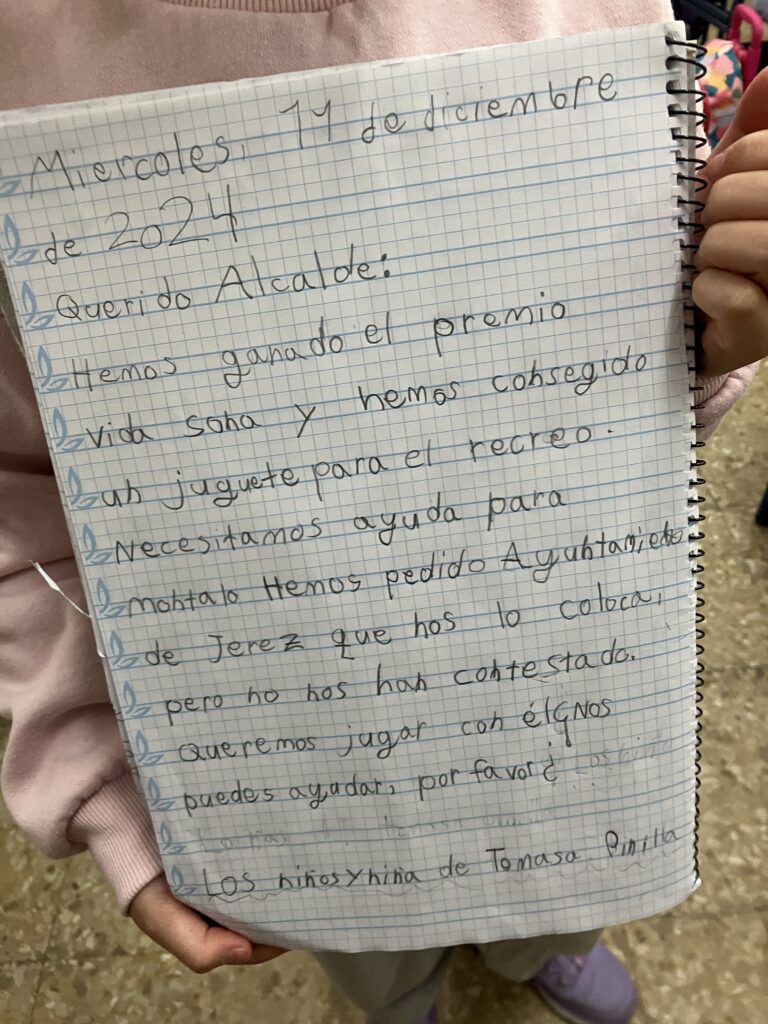 Miercoles, 11 de diciembre
de 2024
Querido Alcalde:
Hemos ganado el premio
vida sana y hemos consegido
un juguete para el recreo.
Necesitamos ayuda para
montalo Hemos pedido Ayuntamiento
de Jerez que nos lo coloca,
pero no nos han contestado.
Queremos jugar con él ¿Nos
puedes ayudar, por favor¿
Los niños y niña de Tomasa Pinilla